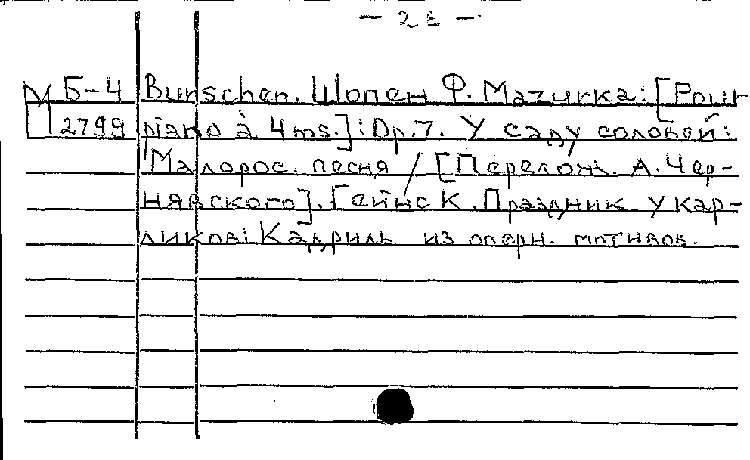 — 2 —
М Б-4 Burschen. Шопен Ф. Mazurka: [Pour
П 2799 piano à 4 ms.]: Op.7. У саду соловей:
Малорос. песня / [Перелож. А. Чер-
нявского]. Гейнс К. Праздник у кар-
ликов: Кадриль из оперн. мотивов.